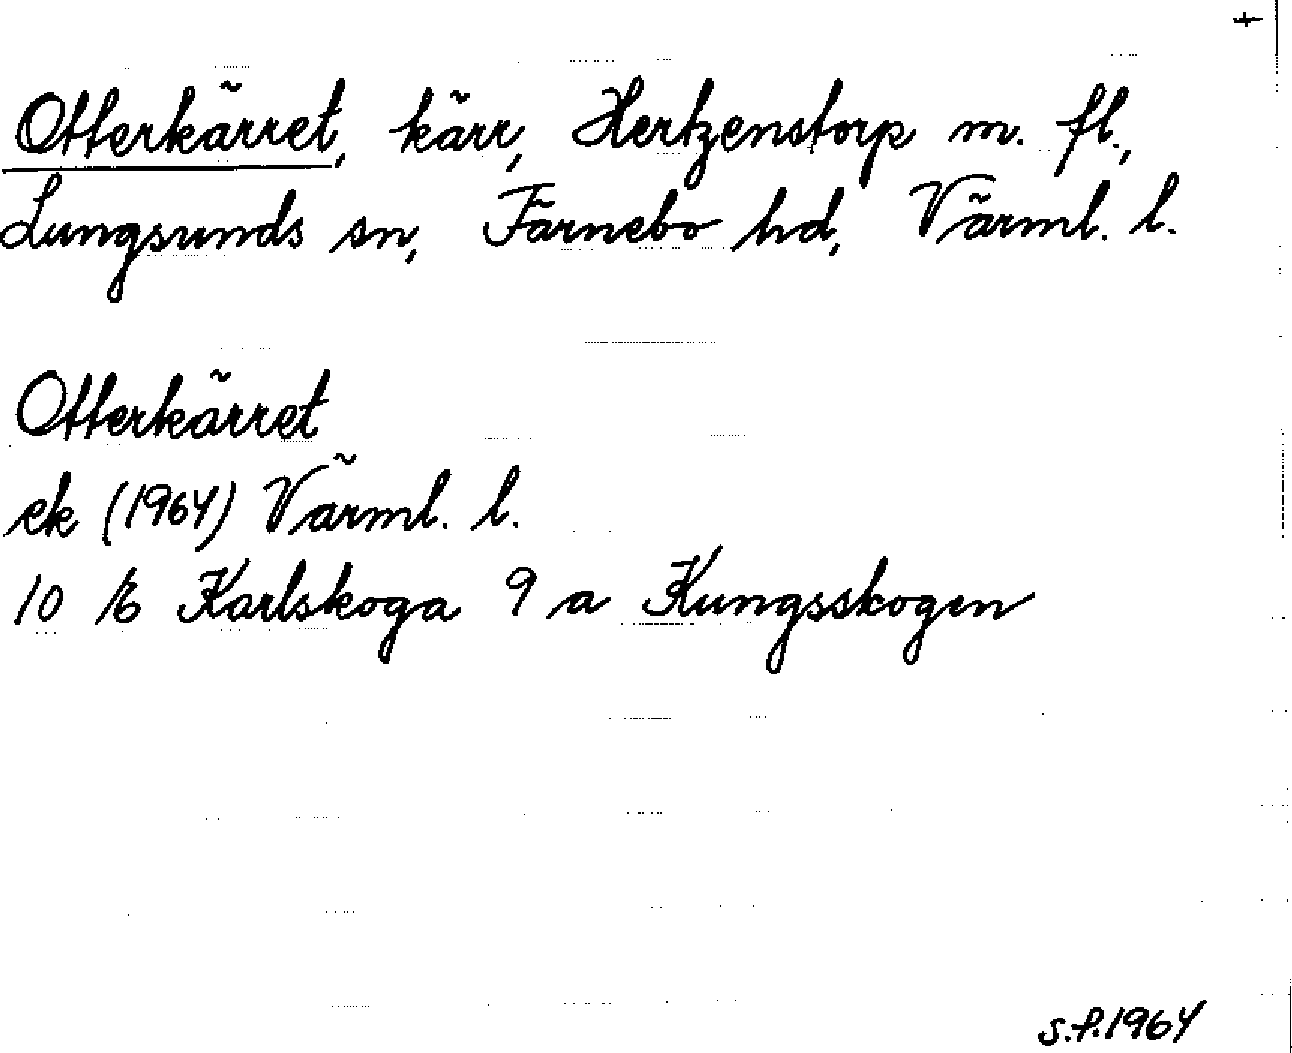 +
Otterkärret, kärr, Hertzenstorp m. fl.,
Lungsunds sn, Färnebo hd, Värml. l.
Otterkärret
ek (1964) Värml. l.
10 E Karlskoga 9 a Kungsskogen
S.f. 1964